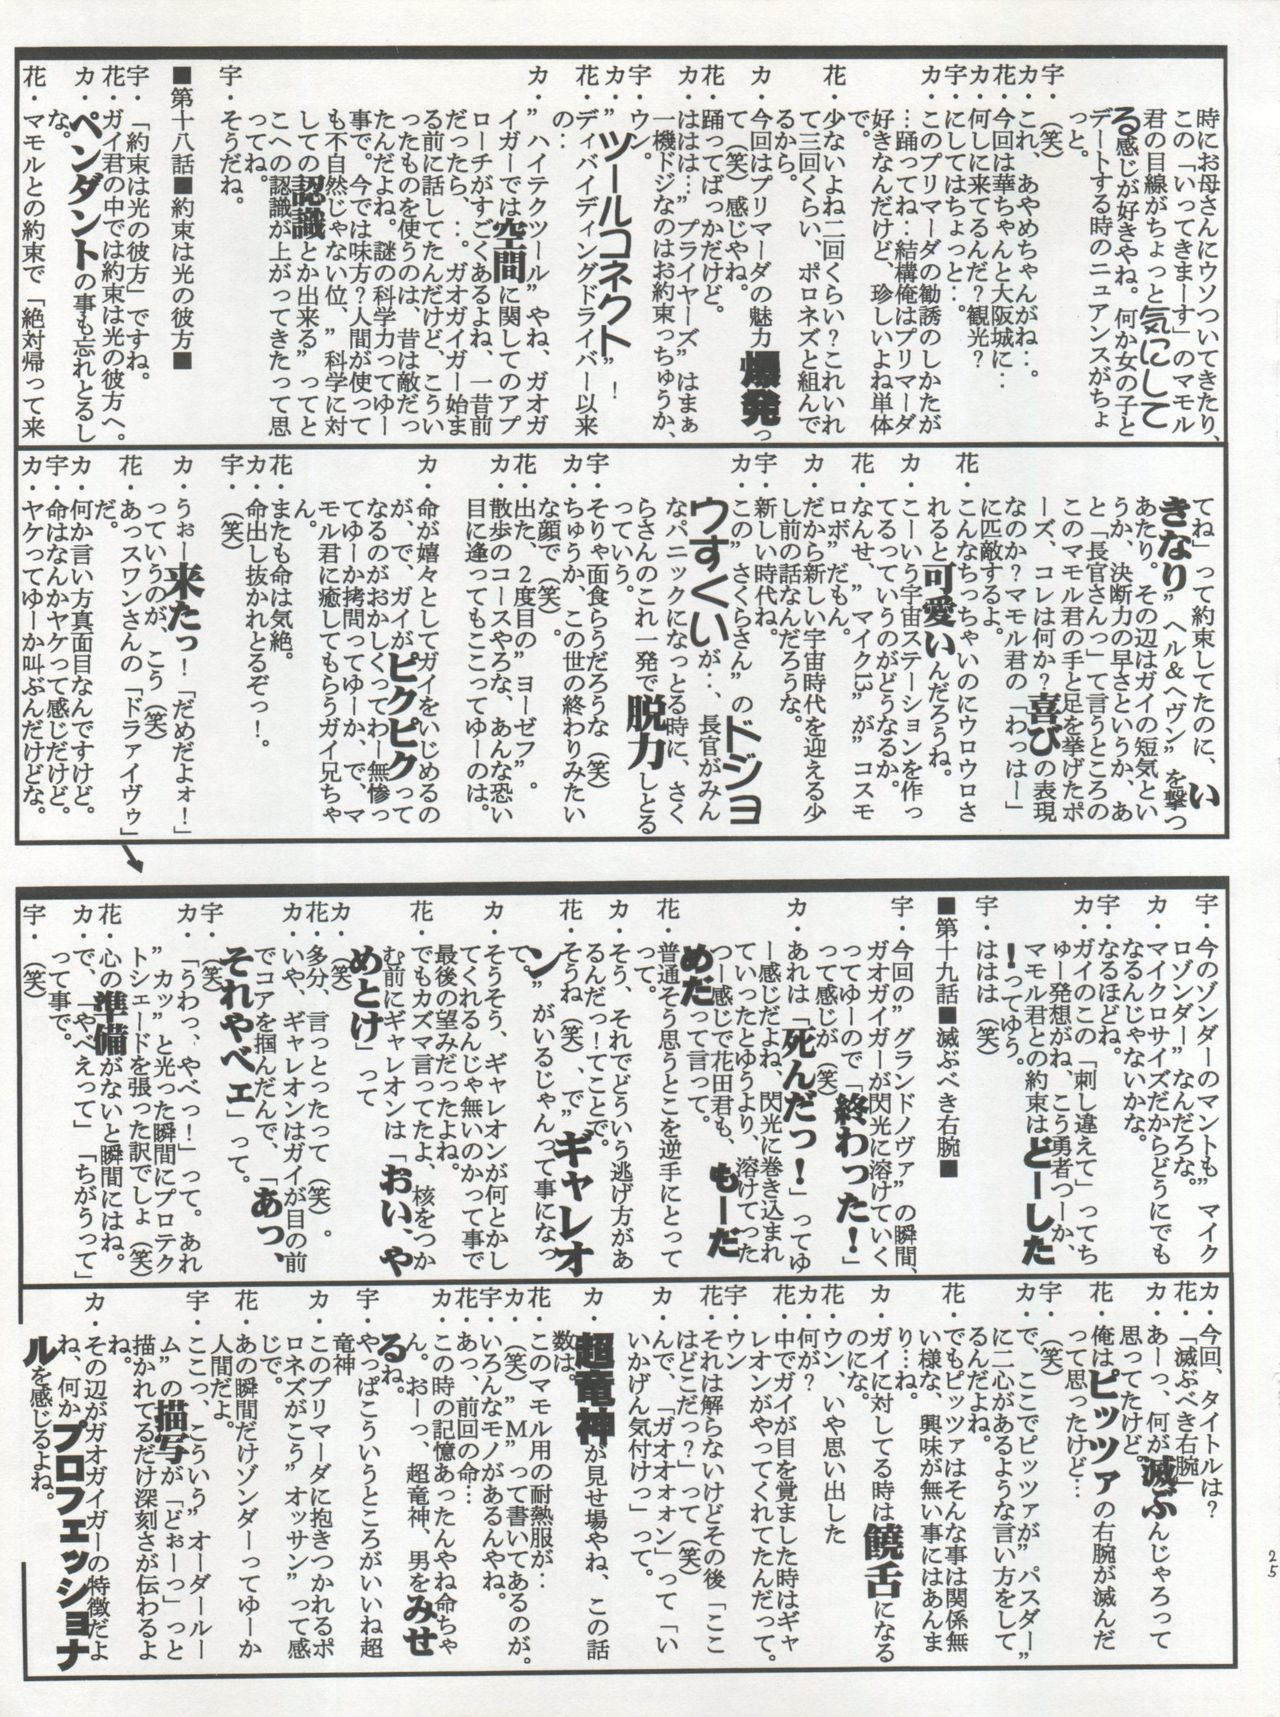 時にお母さんにウソついてきたり、
この「いってきまーす」のマモル
君の目線がちょっと気にして
る感じが好きやね。何か女の子と
デートする時のニュアンスがちょ
っと。
宇・(笑)
カ・これ、あやめちゃんがね‥。
花・今回は華ちゃんと大阪城に‥
カ・何しに来てるんだ?観光?
宇・にしてはちょっと‥。
カ・このプリマーダの勧誘のしかたが
…踊ってね‥結構俺はプリマーダ
好きなんだけど、珍しいよね単体
花・少ないよね二回くらい?これいれ
て三回くらい、ポロネズと組んで
るから。
カ・今回はプリマーダの魅力爆発っ
て(笑)感じやね。
花・踊ってばっかだけど。
カ・ははは…”プライヤーズ”はまぁ
一機ドジなのはお約束っちゅうか、
宇・ウン。
カ・”ツールコネクト”!
花・ディバイディングドライバー以来
の‥
カ・”ハイテクツール”やね、ガオガ
イガーでは空間に関してのアプ
ローチがすごくあるよね、一昔前
だったら、‥。ガオガイガー始ま
る前に話してたんだけど、こうい
ったものを使うのは、昔は敵だっ
たんだよね。謎の科学力ってゆー
事で。今では味方?人間が使って
も不自然じゃない位、”科学に対
しての認識とか出来る”ってと
こへの認識が上がってきたって思
ってね。
宇・そうだね。
■第十八話■約束は光の彼方■
宇・「約束は光の彼方」ですね。
花・ガイ君の中では約束は光の彼方へ。
カ・ペンダントの事も忘れとるし
な。
花・マモルとの約束で「絶対帰って来
てね」って約束してたのに、い
きなり”ヘル&ヘヴン”を撃つ
あたり。その辺はガイの短気とい
うか、決断力の早さというか、あ
と「長官さんっ」て言うところの
このマモル君の手と足を挙げたポ
ーズ、コレは何か?喜びの表現
なのか?マモル君の「わっはー」
に匹敵するよ。
花・こんなちっちゃいのにウロウロさ
れると可愛いんだろうね。
カ・こーいう宇宙ステーションを作っ
てるっていうのがどうなるか。
花・なんせ、”マイク13”が”コスモ
ロボ”だもん。
カ・だから新しい宇宙時代を迎える少
し前の話なんだろうな。
宇・新しい時代ね。
カ・この”さくらさん”のドジョ
ウすくいが‥、長官がみん
なパニックになっとる時に、さく
らさんのこれ一発で脱力しとる
っていう。
宇・そりゃ面食らうだろうな(笑)
カ・ちゅうか、この世の終わりみたい
な顔で(笑)
花・出た、2度目の”ヨーゼフ”。
カ・散歩のコースやろな、あんな恐い
目に逢ってもここってゆーのは。
カ・命が嬉々としてガイをいじめるの
が、で、ガイがピクピクって
なるのがおかしくってわー無惨っ
てゆーか拷問ってゆーか、で、マ
モル君に癒してもらうガイ兄ちゃ
ん。
花・またも命は気絶。
カ・命出し抜かれとるぞっ!。
宇・(笑)
カ・うぉー来たっ!「だめだよォ!」
っていうのが、こう(笑)
花・あっスワンさんの「ドラァイヴゥ」
だ。
カ・何か言い方真面目なんですけど。
宇・命はなんかヤケって感じだけど。
カ・ヤケってゆーか叫ぶんだけどな。
宇・今のゾンダーのマントも”マイク
ロゾンダー”なんだろな。
カ・マイクロサイズだからどうにでも
なるんじゃないかな。
宇・なるほどね。
カ・ガイのこの「刺し違えて」ってち
ゅー発想がね、こう勇者つーか、
マモル君との約束はどーした
!ってゆう。
宇・ははは(笑)
■第十九話■滅ぶべき右腕■
宇・今回の”グランドノヴァ”の瞬間、
ガオガイガーが閃光に溶けていく
ってゆーので「終わった!」
って感じが(笑)
カ・あれは「死んだっ!」ってゆ
ー感じだよね、閃光に巻き込まれ
ていったとゆうより、溶けてった
つー感じで花田君も、もーだ
めだって言って。
花・普通そう思うとこを逆手にとって
って。
カ・そう、それでどういう逃げ方があ
るんだっ!てことで。
花・そうね(笑)、で”ギャレオ
ン”がいるじゃんって事になっ
て。
カ・そうそう、ギャレオンが何とかし
てくれるんじゃ無いのかって事で
最後の望みだったよね。
花・でもカズマ言ってたよ、核をつか
む前にギャレオンは「おい、や
めとけ」って
カ・(笑)
花・多分、言っとったって(笑)。
カ・いや、ギャレオンはガイが目の前
でコアを掴んだんで、「あっ、
それやべェ」って。
宇・(笑)
カ・「うわっ、やべっ!」って。あれ
”カッ”と光った瞬間にプロテク
トシェードを張った訳でしょ(笑)
花・心の準備がないと瞬間にはね。
カ・で、「やべえって」「ちがうって」
って事で。
宇・(笑)
カ・今回、タイトルは?
花・「滅ぶべき右腕」
カ・あーっ、何が滅ぶんじゃろって
思ってたけど。
花・俺はピッツァの右腕が滅んだ
って思ったけど…
宇・(笑)
カ・で、ここでピッツァが”パスダー”
に二心があるような言い方をして
るんだよね。
花・でもピッツァはそんな事は関係無
い様な、興味が無い事にはあんま
り…ね。
カ・ガイに対してる時は饒舌になる
のにな。
花・ウン、いや思い出した
カ・何が?
花・中でガイが目を覚ました時はギャ
レオンがやってくれてたんだって。
宇・ウン
花・それは解らないけどその後「ここ
はどこだっ?」って(笑)
カ・んで、「ガオオオォン」って「い
いかげん気付けっ」って。
カ・超竜神が見せ場やね、この話
数は。
花・このマモル用の耐熱服が‥
カ・(笑)”M”って書いてあるのが。
宇・いろんなモノがあるんやね。
花・あっ、前回の命…
カ・この時の記憶あったんやね命ちゃ
ん。おーっ、超竜神、男をみせ
るね。
宇・やっぱこういうところがいいね超
竜神
カ・このプリマーダに抱きつかれるポ
ロネズがこう”オッサン”って感
じで。
花・あの瞬間だけゾンダーってゆーか
人間だよ。
宇・ここっ、こういう”オーダールー
ム”の描写が「どぉーっ」っと
描かれてるだけ深刻さが伝わるよ
ね。
カ・その辺がガオガイガーの特徴だよ
ね、何かプロフェッショナ
ルを感じるよね。
25